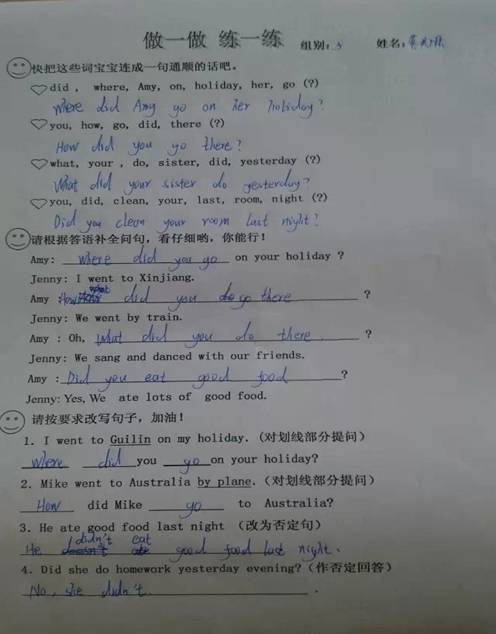 做一做 练一练 组别：3 姓名：
快把这些词宝宝连成一句通顺的话吧。
did , where, Amy, on, holiday, her, go (?)
Where did Amy go on her holiday?
you, how, go, did, there (?)
How did you go there?
what, your , do, sister, did, yesterday (?)
What did your sister do yesterday?
you, did, clean, your, last, room, night (?)
Did you clean your room last night?
请根据答语补全问句，看仔细哟，你能行！
Amy: where did you go on your holiday ?
Jenny: I went to Xinjiang.
Amy How did you go there ?
Jenny: We went by train.
Amy : Oh, what did you do there ?
Jenny: We sang and danced with our friends.
Amy : Did you eat good food ?
Jenny: Yes, We ate lots of good food.
请按要求改写句子，加油！
1. I went to Guilin on my holiday. (对划线部分提问)
where did you go on your holiday?
2. Mike went to Australia by plane. (对划线部分提问)
How did Mike go to Australia?
3. He ate good food last night （改为否定句）
He didn't eat good food last night.
4. Did she do homework yesterday evening? (作否定回答)
No, she didn't.